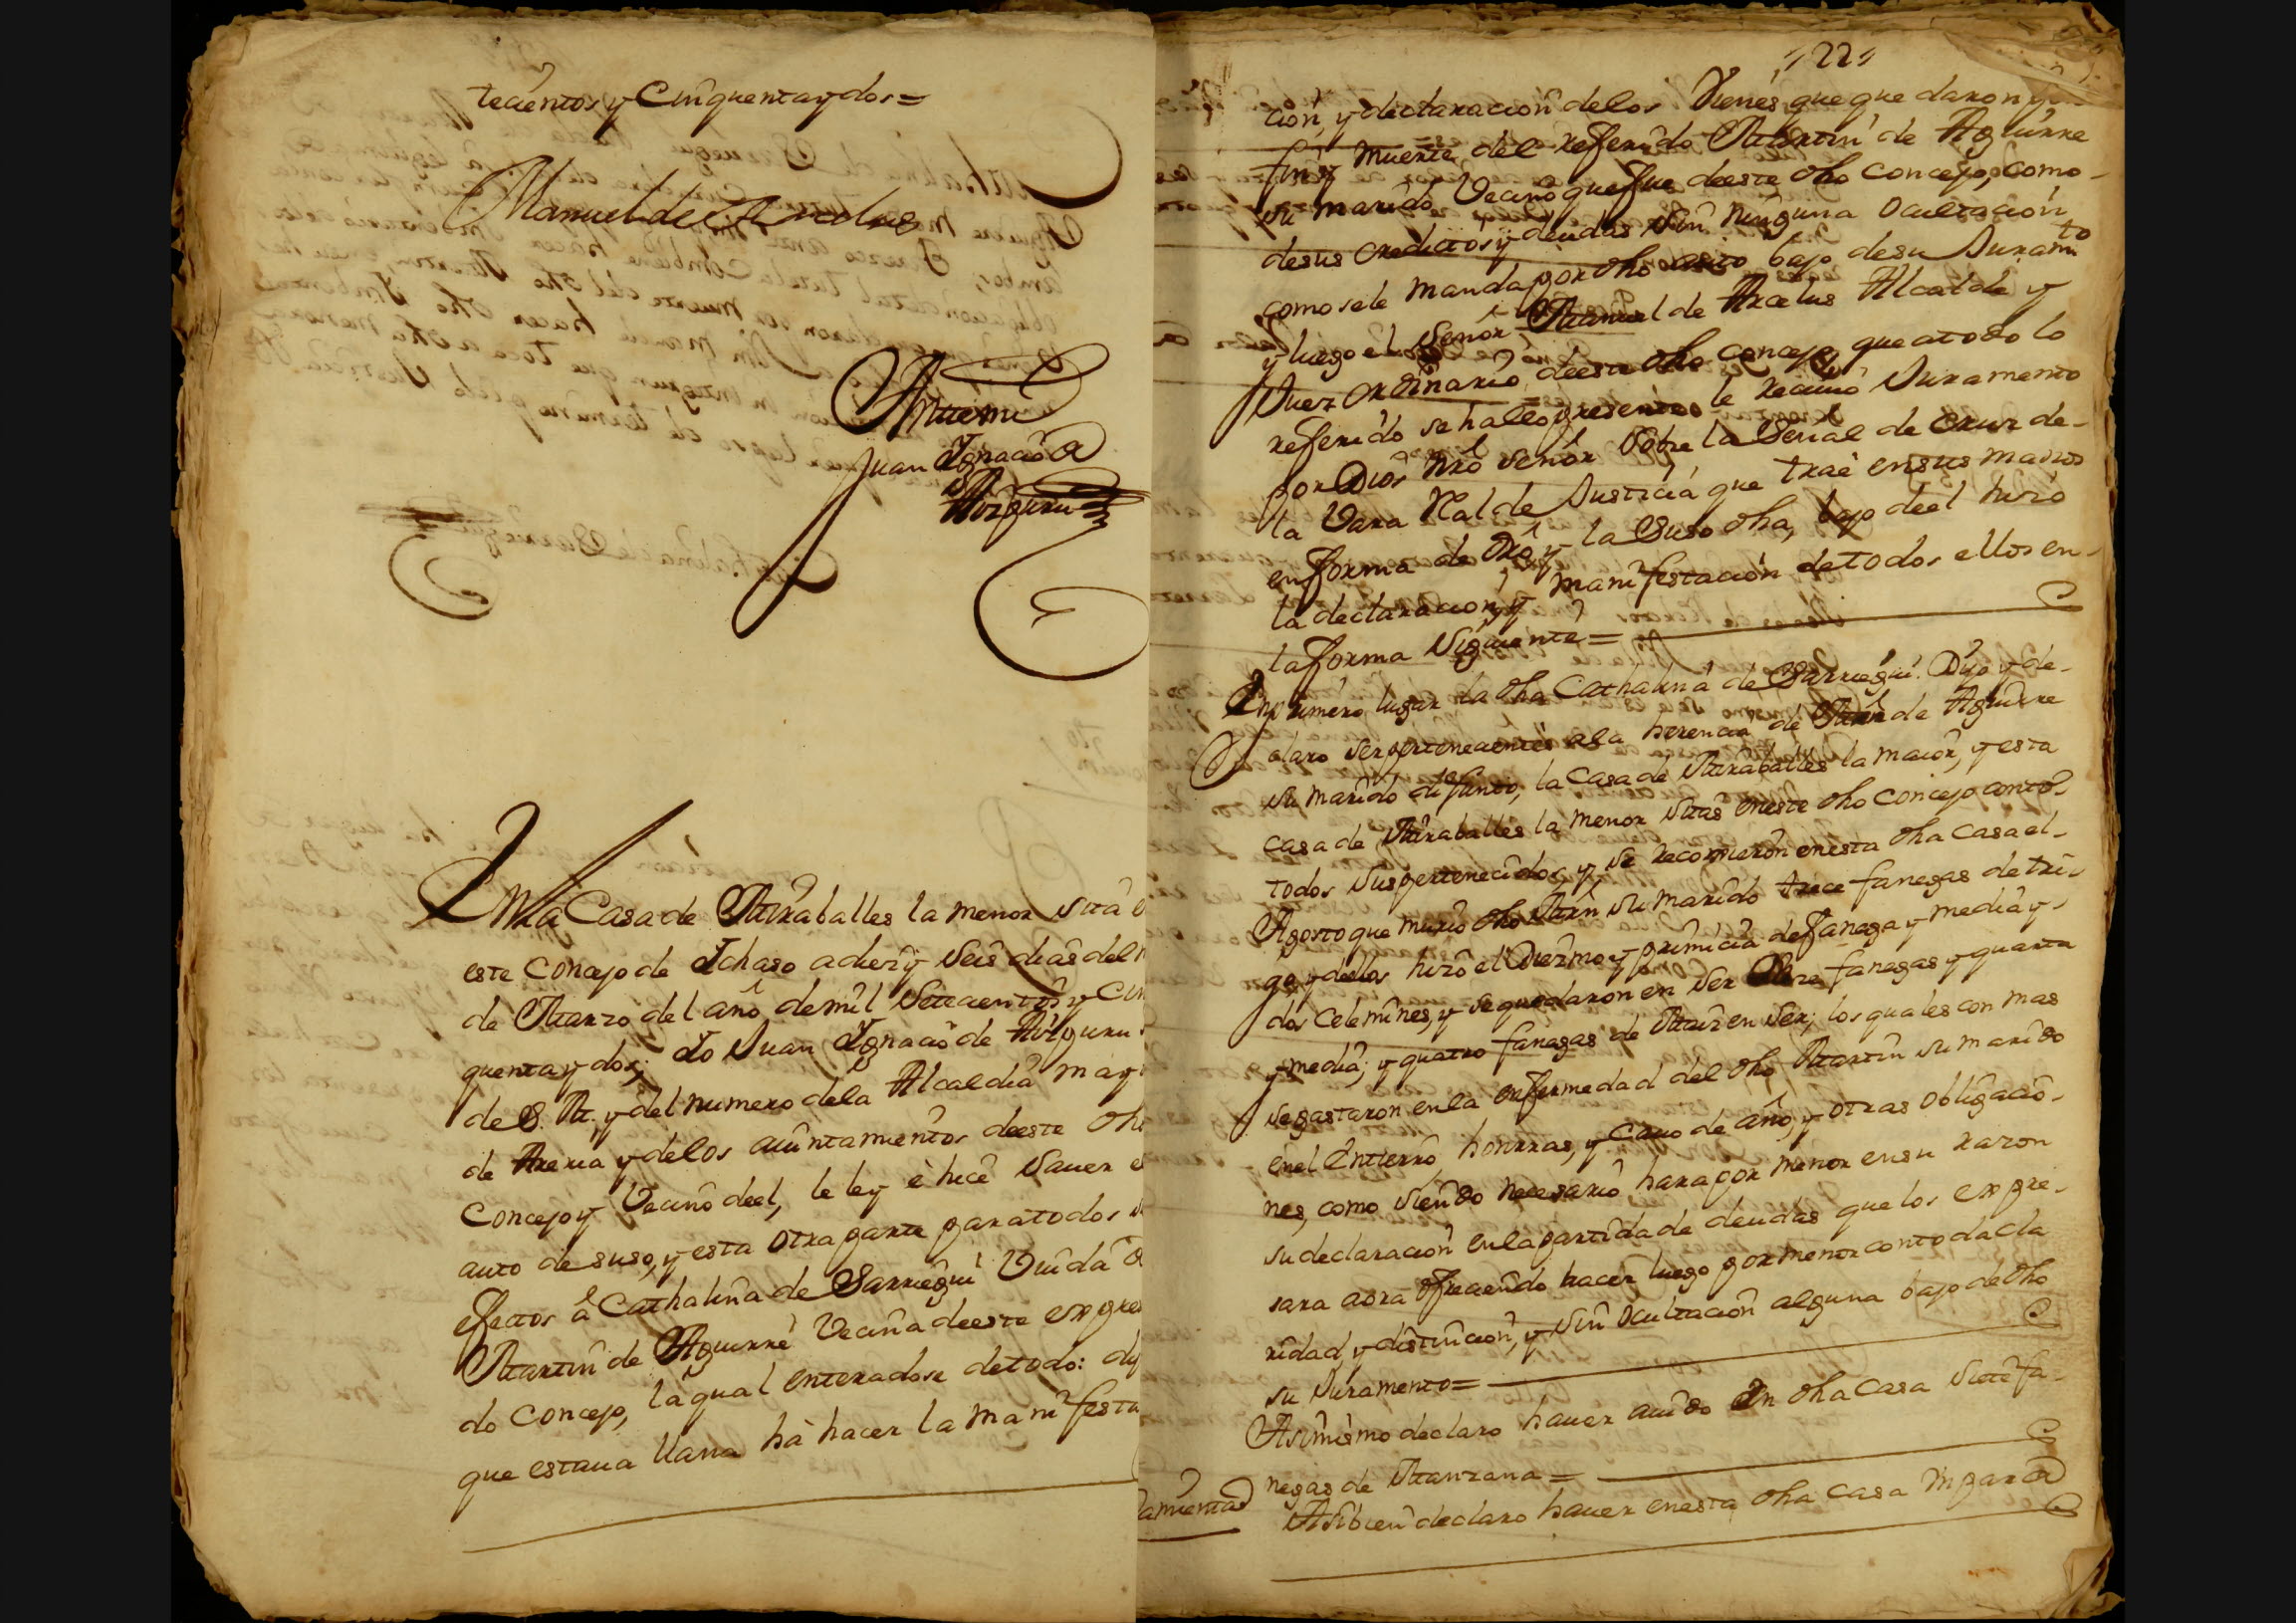 tecientos y Cinquenta y dos =
Manuel de Arcelus
Ante mi
Juan Ignacio
de Aizpuru
En la Casa de Muraballes la menor sita
este Concejo de Ichaso a diez y seis dias del
de Marzo del año de mil Setecientos y Cin
quenta y dos; Yo Juan Ignacio de Aizpuru
de S. M. y del numero de la Alcaldia mayr
de Areria y de los aiuntamientos de este dho
Concejo y Vecino de el, le ley è hice saver e
auto de suso, y esta otra parte para todos
efectos â Cathalina de Sarriegui Viuda
Martin de Aguirre Vecina de este expre
do Concejo, la qual enterados de todo: dijo
que estava llana hà hacer la manifesta
22
cion, y declaracion de los Vienes, que quedaron y
fin y muerte del referido Martin de Aguirre
su marido Vecino que fue de este dho concejo, como
de sus creditos y deudas sin ninguna ocultacion
como se le manda por dho auto bajo de su Juramto
y luego el Señor Manuel de Arcelus Alcalde y
Juez ordinario de este dho concejo, que a todo lo
referido se hallo presente le recivio Juramento
por Dios nrô Señor sobre la Señal de Cruz de
la Vara Rl de Justicia que trae en sus manos
en forma de Drô, y la suso dha, bajo de el hizo
la declaracion, y manifestacion de todos ellos en
la forma Siguiente =
En primero lugar la dha Cathalina de Sarriegui: Dijo y de
claro ser pertenecientes a la herencia de Mrn de Aguirre
su marido difunto, la Casa de Muraballes la maior, y esta
casa de Muraballes la menor sitas en este dho Concejo con to
todos sus pertenecidos, y se recogieron en esta dha Casa el
Agosto que murio dho Mrn su marido trece fanegas de tri
go, y de los hizo el Diezmo y primicia de fanega y media y
dos Celemines, y se quedaron en ser Onze fanegas y quarta
y media; y quatro fanegas de Maiz en ser; los quales con mas
se gastaron en la enfermedad del dho Martin su marido
en el Entierro, honrras, y Cavo de año, y otras obligacio
nes, como siendo necesario hara por menor en su razon
su declaracion en la partida de deudas que los expre
sara aora ofreciendo hacer luego por menor con toda cla
ridad, y distincion, y sin Ocultacion alguna bajo de dho
su Juramento =
Asimismo declaro haver avido en dha Casa Siete fa
negas de Manzana =
Asibien declaro haver en esta dha casa un par de